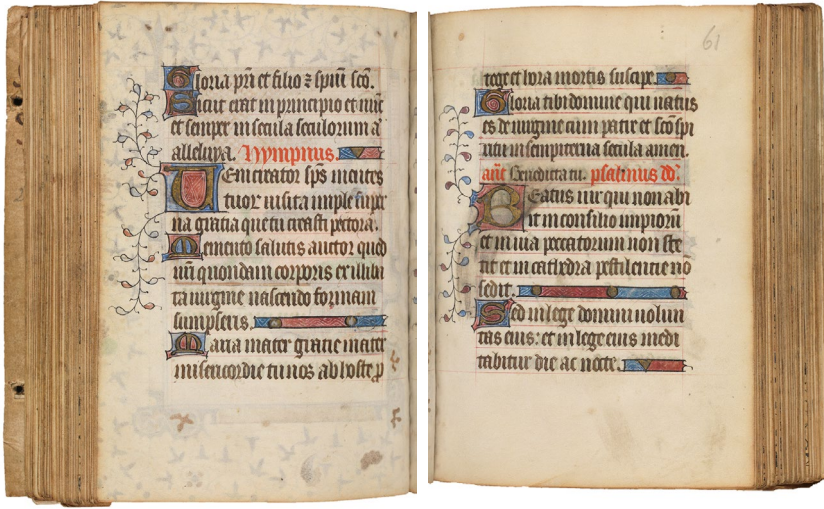 Gloria pri et filio z spiui sco.
Sicut erat in principio et nuc
et semper in secula seculorum a
alleluya. Nympnus.
Veni creator sps mentes
tuor visita imple supr
na gracia que tu creasti pectora.
Memento salutis auctor quod
nri quondam corporis ex iliba
ta virgine nascendo formam
sumpseris.
Maria mater gracie mater
misericordie tu nos ab hoste p
61
tege et hora mortis suscipe.
Gloria tibi domine qui natus
es de virgine cum patre et sco spi
ritu in sempiterna secula amen.
ant Benedicta tu. psalmus dd.
Beatus vir qui non abi
it in consilio impioru
et in via peccatorum non ste
tit et in cathedra pestilentie no
sedit.
Sed in lege domini volun
tas eius: et in lege eius medi
tabitur die ac nocte.